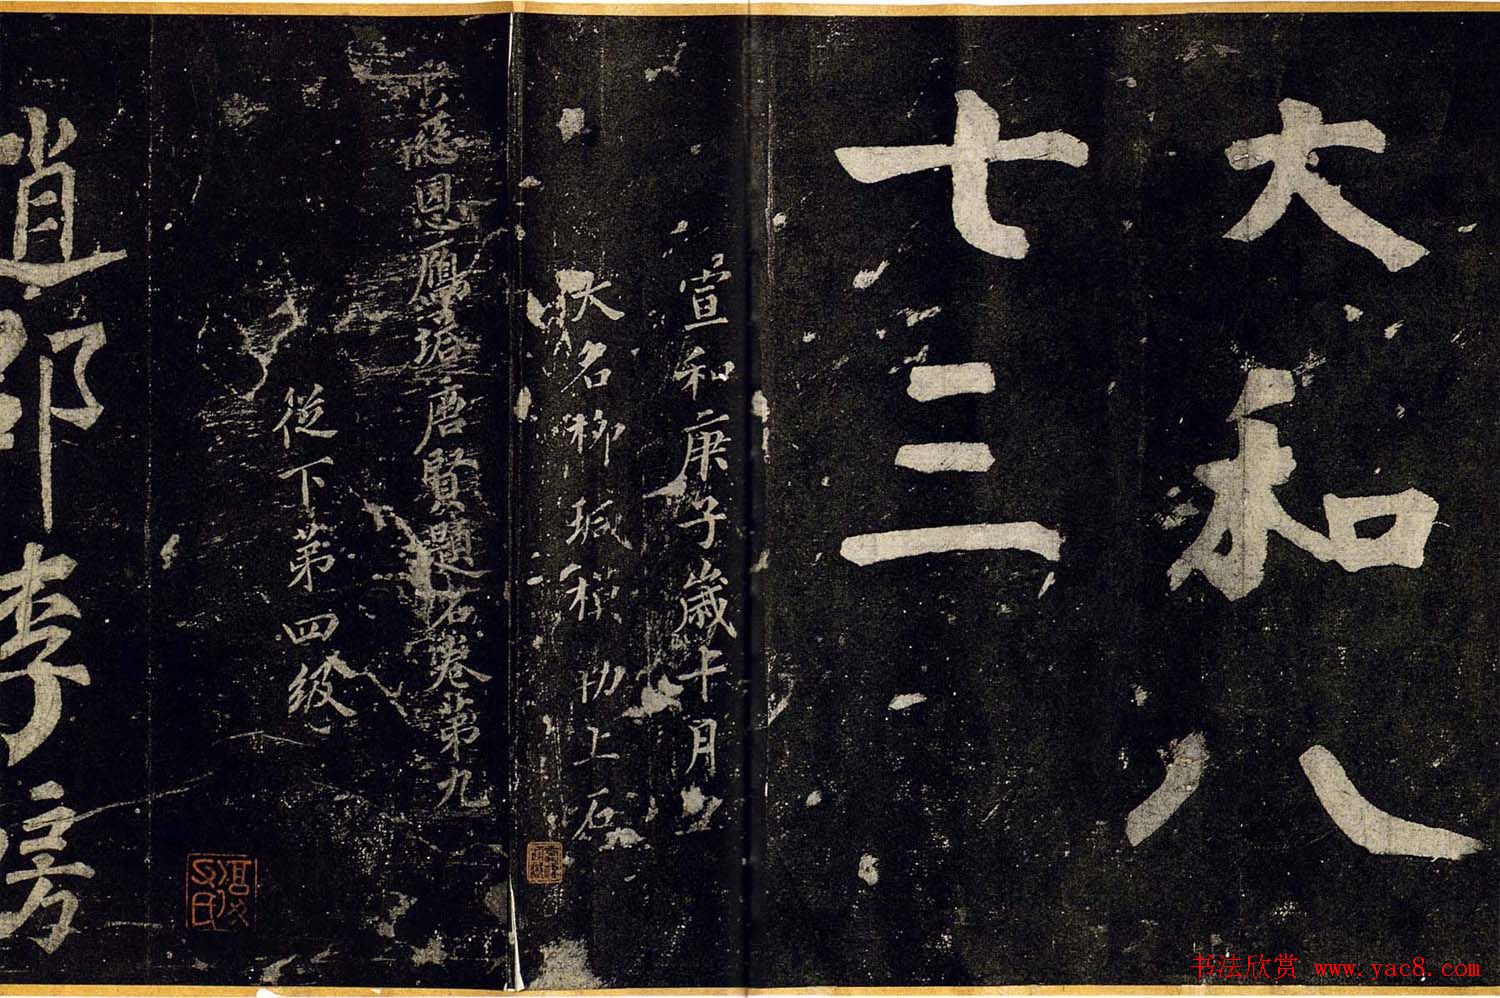 大和八
七三
宣和庚子歲十月
大名柳瑊模勒上石
慈恩雁塔唐賢題名卷第九
從下第四級
逍郎李方
书法欣赏 www.yac8.com